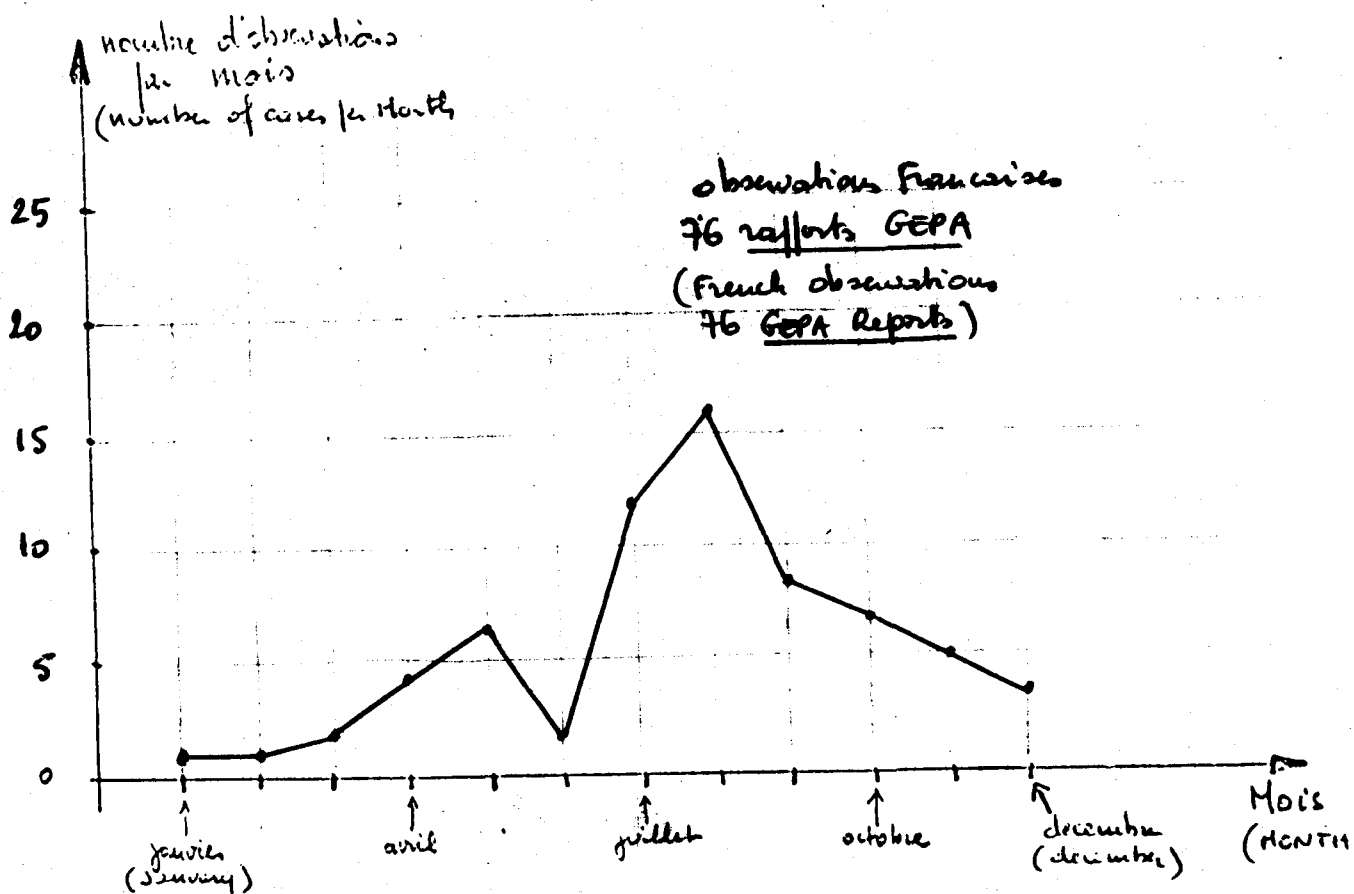 nombre d'observations
par mois
(number of cases per Month
observations Francaises
76 rapports GEPA
(French observations
76 GEPA Reports)
25
20
15
10
5
0
janvier
(January)
avril
juillet
octobre
decembre
(december)
Mois
(MONTH